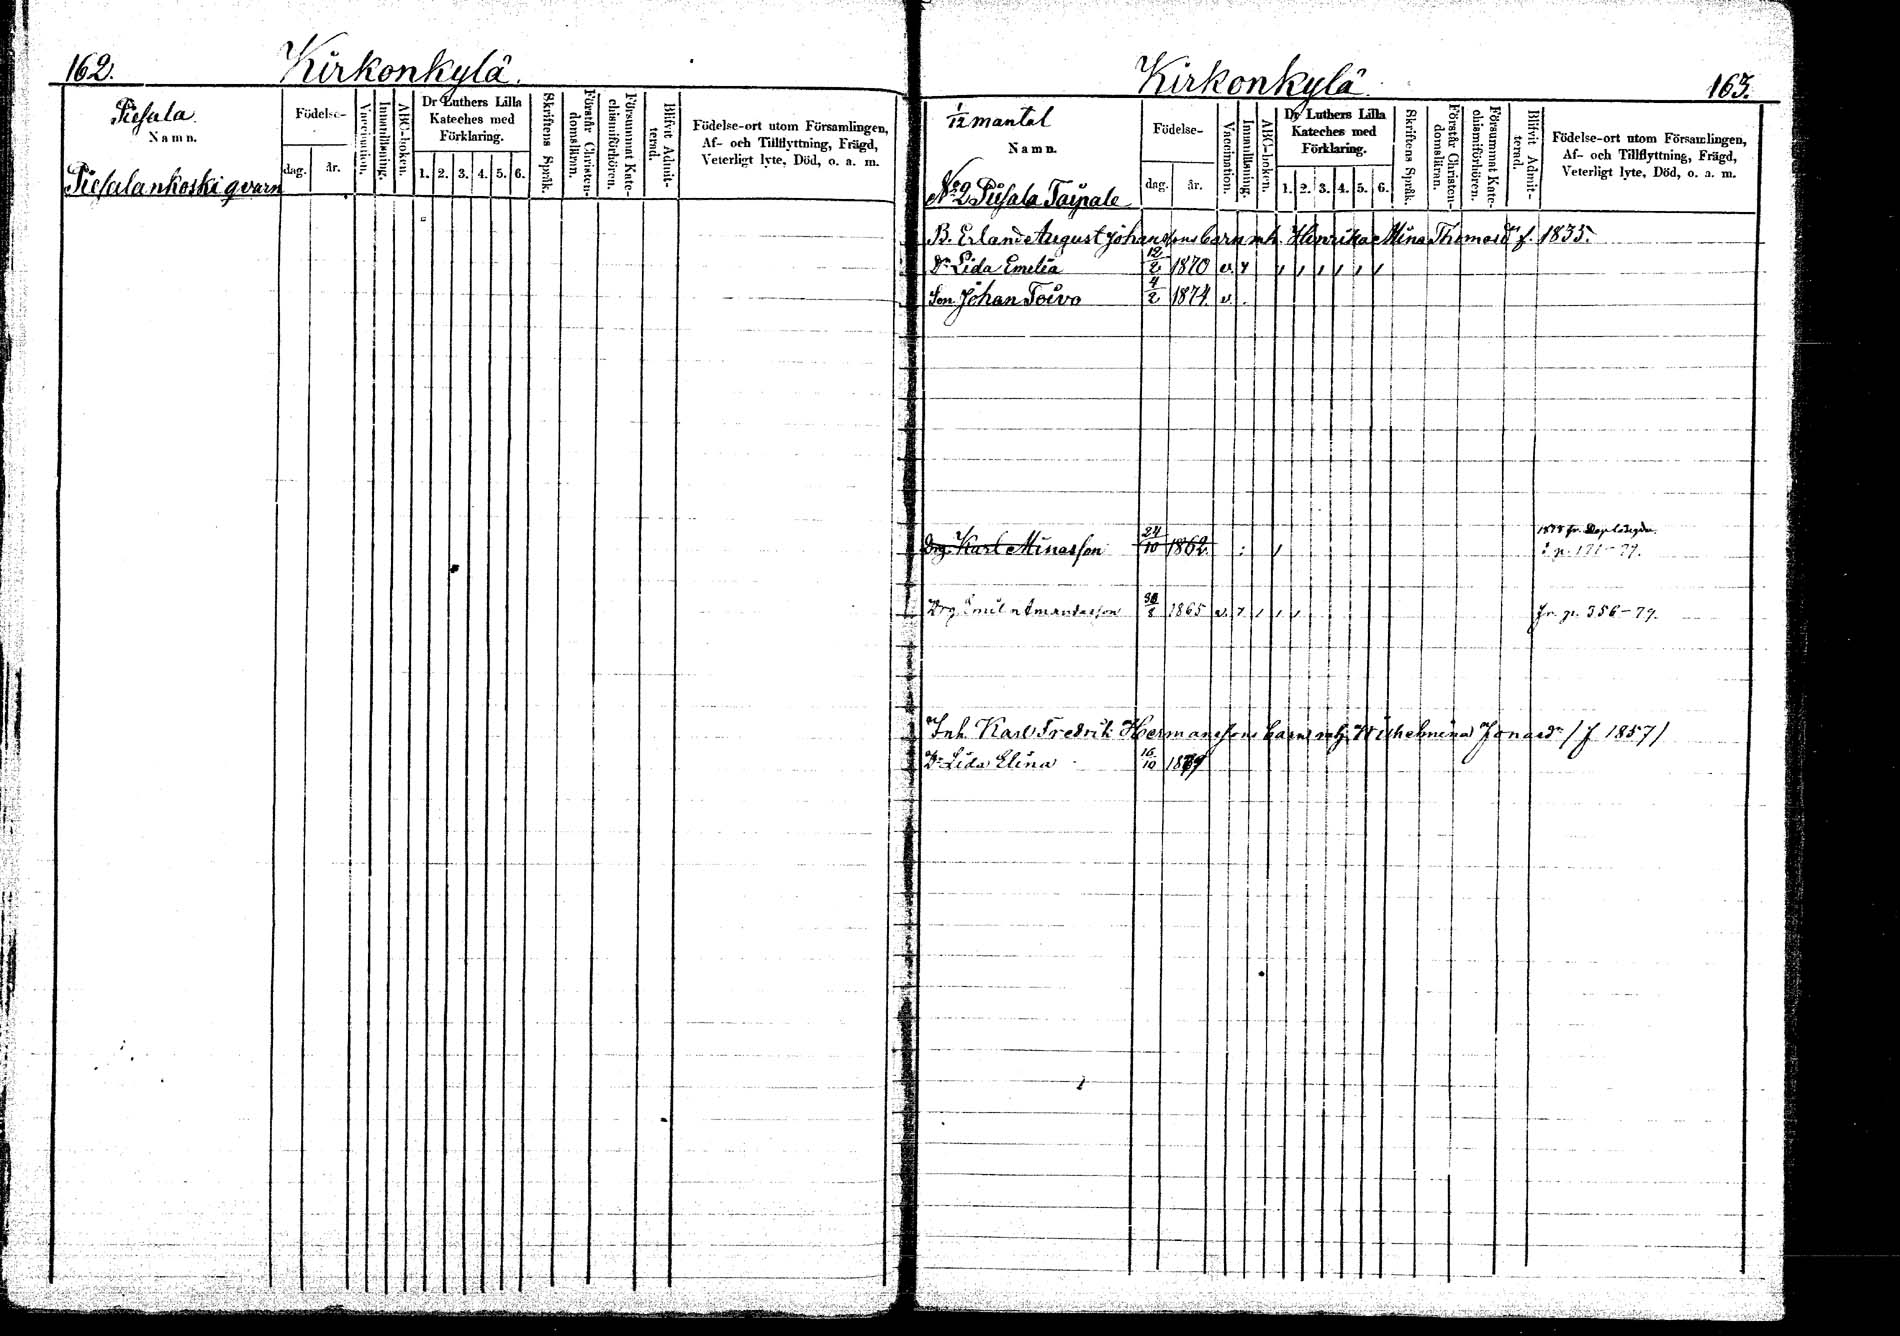 162.
Kirkonkylä.
Piesala.
Namn.
Födelse-
dag.
år.
Vaccination.
Innanläsning.
ABC-boken.
Dr Luthers Lilla
Kateches med
Förklaring.
1. 2. 3. 4. 5. 6.
Skriftens Språk.
Förstår Christen-
domsläran.
Försummat Kate-
chismiförhören.
Blifvit Admit-
terad.
Födelse-ort utom Församlingen,
Af- och Tillflyttning, Frägd,
Veterligt lyte, Död, o. a. m.
Piesalankoski qvarn
Kirkonkylä.
163.
1/12 mantal
Namn.
Födelse-
dag.
år.
Vaccination.
Innanläsning.
ABC-boken.
Dr Luthers Lilla
Kateches med
Förklaring.
1. 2. 3. 4. 5. 6.
Skriftens Språk.
Förstår Christen-
domsläran.
Försummat Kate-
chismiförhören.
Blifvit Admit-
terad.
Födelse-ort utom Församlingen,
Af- och Tillflyttning, Frägd,
Veterligt lyte, Död, o. a. m.
No 2 Piesala Taipale
B. Erland August Johanssons barn mh. Henrika Mina Thomasdr f. 1835.
Dr Lida Emelia 12/2 1870 v.
Son Johan Toivo 4/2 1874. v.
Drg. Karl Minasson 24/10 1862.
1878 fr.
Drg Emil Amandasson 30/8 1865 v. fr. p. 356-79.
Inh. Karl Fredrik Hermanssons barn mh. Wilhelmina Jonasdr / f 1857 /
Dr Lida Elina 16/10 1879